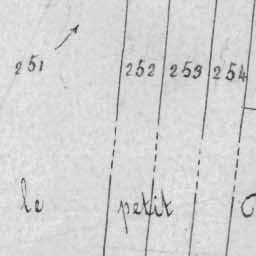 251 252 253 254
le petit